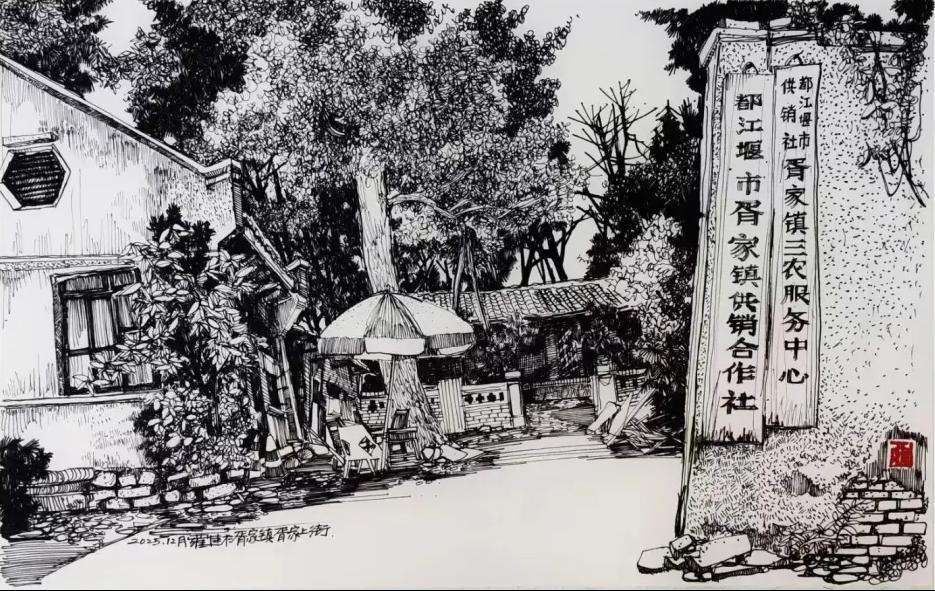 都江堰市
供销社
胥家镇三农服务中心
都江堰市胥家镇供销合作社
2025.12月 市胥家镇胥家上街.